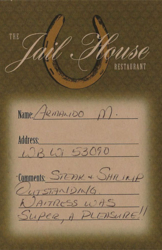 THE
Jail House
RESTAURANT
Name: ARMANDO M.
Address:
WB WI 53090
Comments: STEAK & SHRIMP
OUTSTANDING
WAITRESS WAS
SUPER, A PLEASURE!!